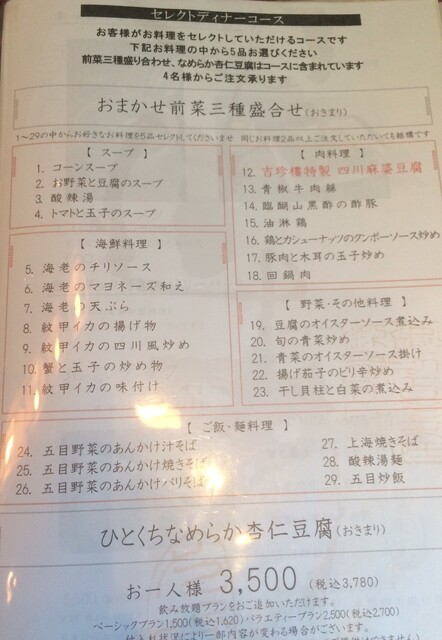 セレクトディナーコース
お客様がお料理をセレクトしていただけるコースです
下記お料理の中から5品お選びください
前菜三種盛り合わせ、なめらか杏仁豆腐はコースに含まれています
4名様からご注文承ります
おまかせ前菜三種盛合せ(おきまり)
1～29の中からお好きなお料理を5品セレクトしてくださいませ 同じお料理2品以上ご注文していただいても結構です
【 スープ 】
1. コーンスープ
2. お野菜と豆腐のスープ
3. 酸辣湯
4. トマトと玉子のスープ
【 海鮮料理 】
5. 海老のチリソース
6. 海老のマヨネーズ和え
7. 海老の天ぷら
8. 紋甲イカの揚げ物
9. 紋甲イカの四川風炒め
10. 蟹と玉子の炒め物
11. 紋甲イカの味付け
【 肉料理 】
12. 吉珍樓特製 四川麻婆豆腐
13. 青椒牛肉絲
14. 臨醐山黒酢の酢豚
15. 油淋鶏
16. 鶏とカシューナッツのクンポーソース炒め
17. 豚肉と木耳の玉子炒め
18. 回鍋肉
【 野菜・その他料理 】
19. 豆腐のオイスターソース煮込み
20. 旬の青菜炒め
21. 青菜のオイスターソース掛け
22. 揚げ茄子のピリ辛炒め
23. 干し貝柱と白菜の煮込み
【 ご飯・麺料理 】
24. 五目野菜のあんかけ汁そば
25. 五目野菜のあんかけ焼きそば
26. 五目野菜のあんかけバリそば
27. 上海焼きそば
28. 酸辣湯麺
29. 五目炒飯
ひとくちなめらか杏仁豆腐(おきまり)
お一人様 3,500 (税込3,780)
飲み放題プランをご追加いただけます。
ベーシックプラン1,500(税込1,620)バラエティープラン2,500(税込2,700)
仕入れ状況により一部内容が変わる場合がございます。